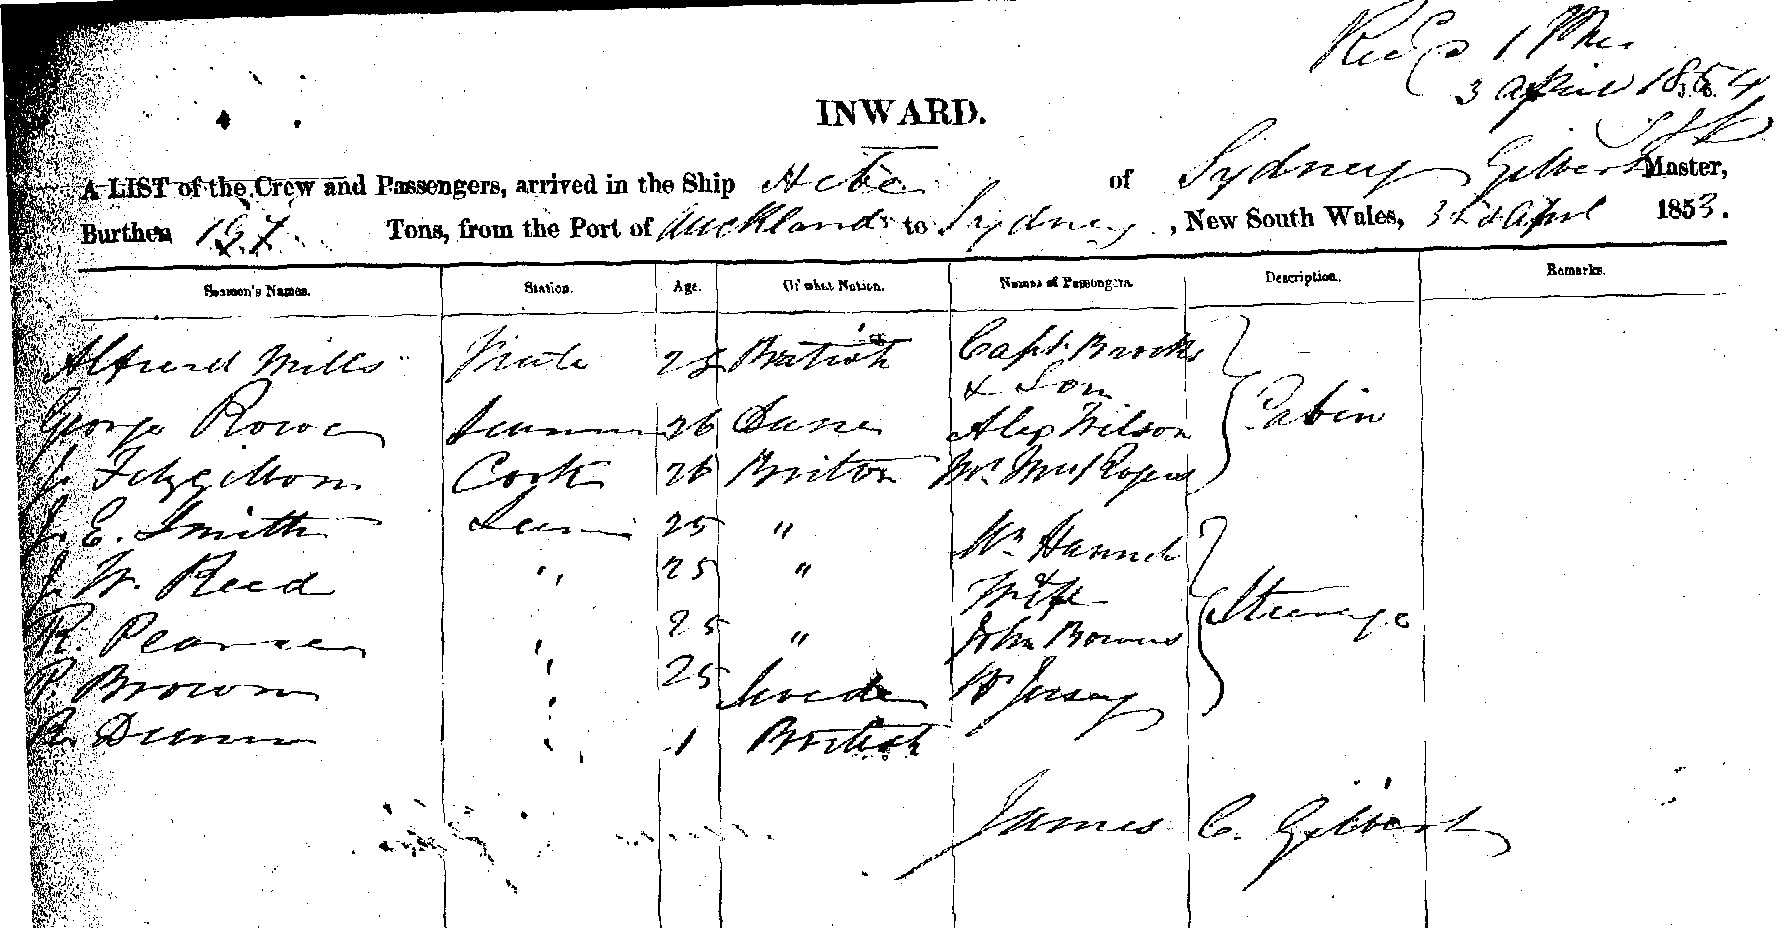 3 April 1854
INWARD.
A LIST of the Crew and Passengers, arrived in the Ship Hebe of Sydney Gilbert Master,
Burthen Tons, from the Port of Auckland to Sydney, New South Wales, 3rd April 1853.
Seamen's Names. Station. Age. Of what Nation. Names of Passengers. Description. Remarks.
Alfred Mills Mate 28 British Capt. Brooks
& Son
George Rowe Seaman 26 Dane Alex Wilson Cabin
J. Fitzgibbon Cook 26 Briton Mr. Mrs Rogers
J. E. Smith Sea 25 " Wm Hannah
J. W. Reed " 25 " & Wife Steerage
R. Pearsen " 25 " John Bowers
P. Brown " 25 Swede W Jersey
R. Dunn " British
James C. Gilbert